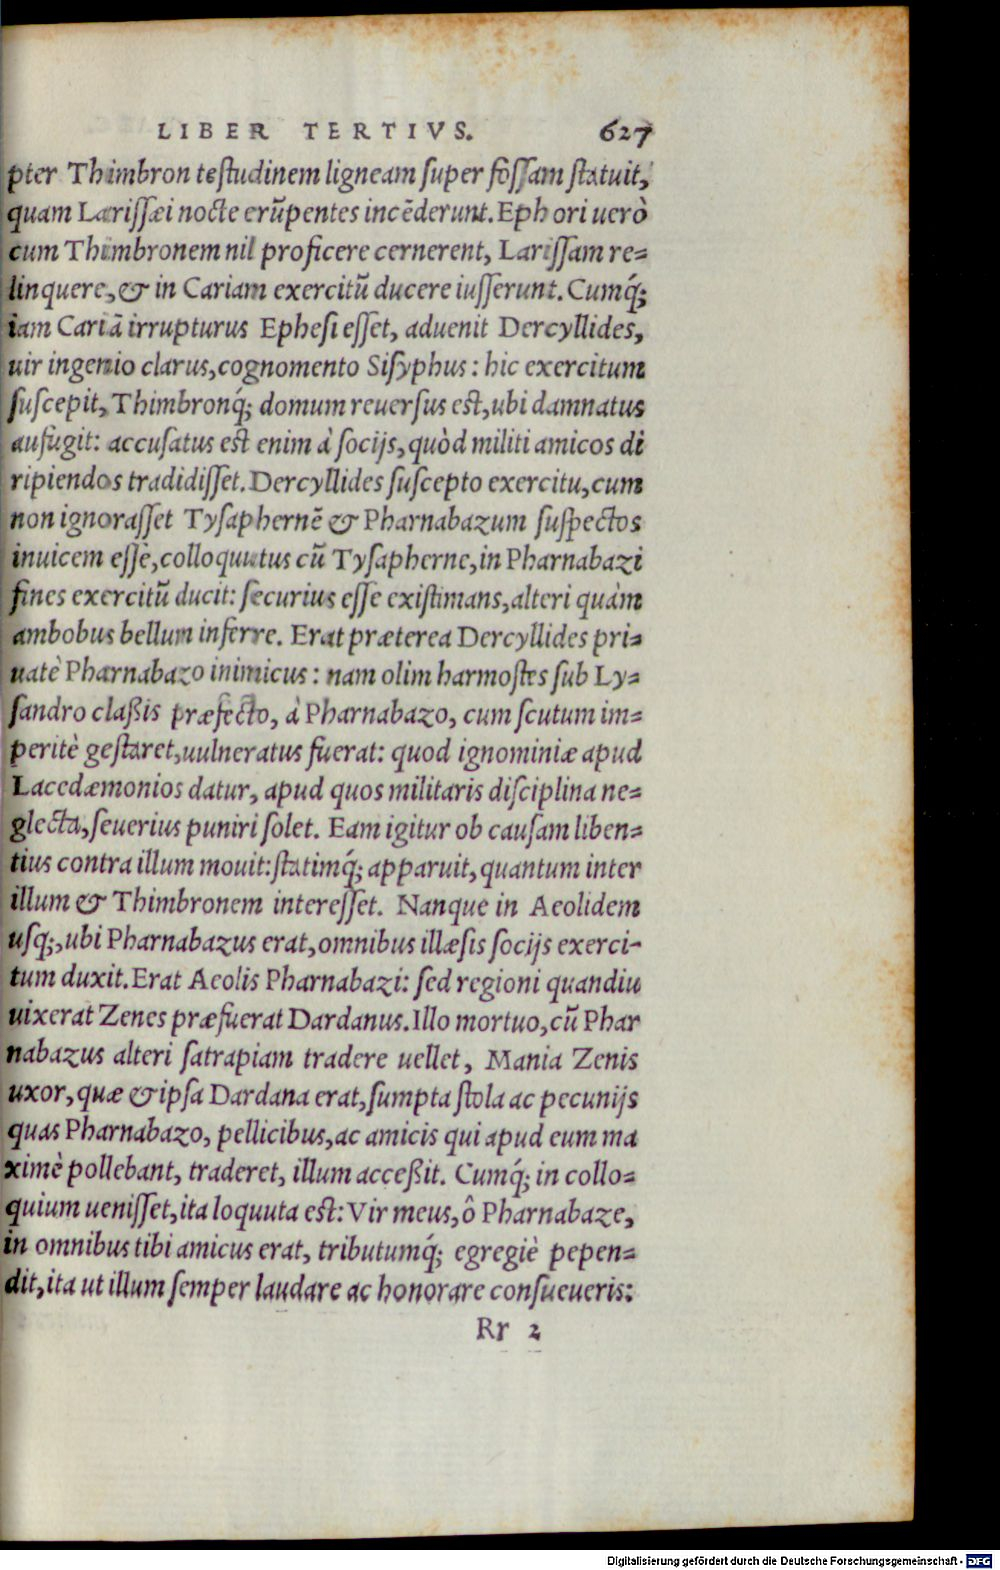 LIBER TERTIVS. 627
pter Thimbron testudinem ligneam super fossam statuit,
quam Larissæi nocte erũpentes incẽderunt. Ephori uerò
cum Thimbronem nil proficere cernerent, Larissam re=
linquere, & in Cariam exercitũ ducere iusserunt. Cumq́;
iam Cariā irrupturus Ephesi esset, aduenit Dercyllides,
uir ingenio clarus, cognomento Sisyphus: hic exercitum
suscepit, Thimbronq́; domum reuersus est, ubi damnatus
aufugit: accusatus est enim à socijs, quòd militi amicos di
ripiendos tradidisset. Dercyllides suscepto exercitu, cum
non ignorasset Tysaphernẽ & Pharnabazum suspectos
inuicem esse, colloquutus cũ Tysapherne, in Pharnabazi
fines exercitũ ducit: securius esse existimans, alteri quàm
ambobus bellum inferre. Erat præterea Dercyllides pri=
uatè Pharnabazo inimicus: nam olim harmostes sub Ly=
sandro claßis præfecto, à Pharnabazo, cum scutum im=
peritè gestaret, uulneratus fuerat: quod ignominiæ apud
Lacedæmonios datur, apud quos militaris disciplina ne=
glecta, seuerius puniri solet. Eam igitur ob causam liben=
tius contra illum mouit: statimq́; apparuit, quantum inter
illum & Thimbronem interesset. Nanque in Aeolidem
usq;, ubi Pharnabazus erat, omnibus illæsis socijs exerci-
tum duxit. Erat Aeolis Pharnabazi: sed regioni quandiu
uixerat Zenes præfuerat Dardanus. Illo mortuo, cũ Phar
nabazus alteri satrapiam tradere uellet, Mania Zenis
uxor, quæ & ipsa Dardana erat, sumpta stola ac pecunijs
quas Pharnabazo, pellicibus, ac amicis qui apud eum ma
ximè pollebant, traderet, illum acceßit. Cumq́; in collo=
quium uenisset, ita loquuta est: Vir meus, ô Pharnabaze,
in omnibus tibi amicus erat, tributumq́; egregiè pepen=
dit, ita ut illum semper laudare ac honorare consueueris:
Rr 2
Digitalisierung gefördert durch die Deutsche Forschungsgemeinschaft - DFG